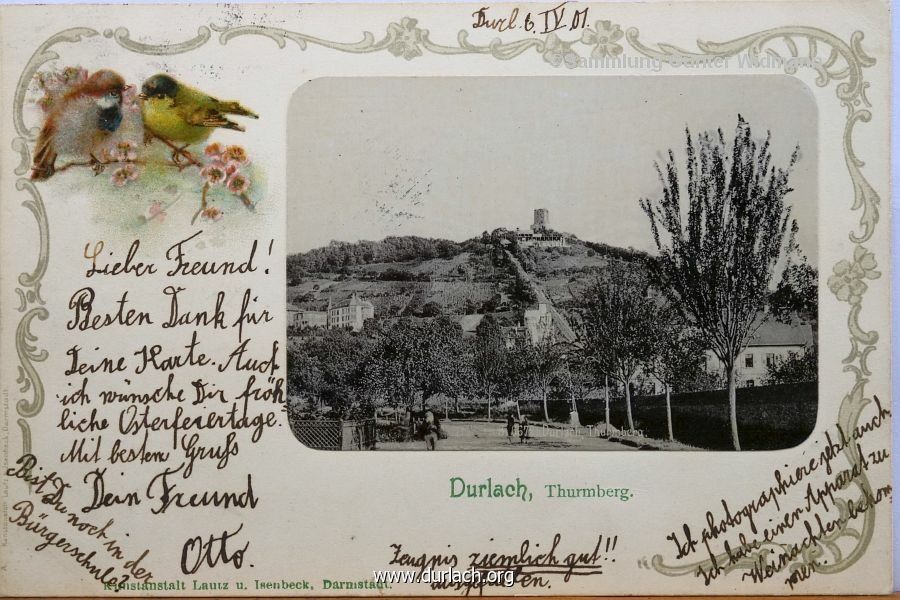 Durl. 6. IV. 01.
©Sammlung Günter Widmann
Lieber Freund!
Besten Dank für
Deine Karte. Auch
ich wünsche Dir fröh
liche Osterfeiertage.
Mit besten Gruß
Dein Freund
Otto.
Bist Du noch in der
Bürgerschule?
Durlach, Thurmberg.
Durlach, Thurmberg.
Zeugnis ziemlich gut!!
ausgefallen.
Ich photographiere jetzt auch
Ich habe einen Apparat zu
Weinachten bekom
men.
Kunstanstalt Lautz u. Isenbeck, Darmstadt.
www.durlach.org